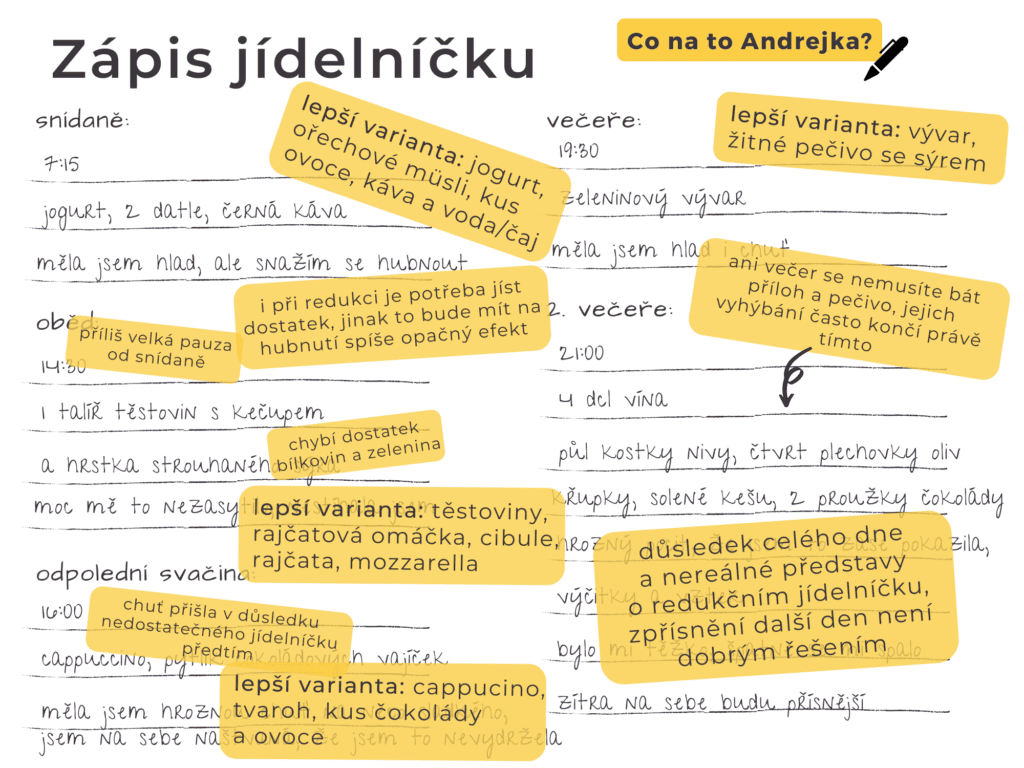 Zápis jídelníčku
Co na to Andrejka?
snídaně:
7:15
jogurt, 2 datle, černá káva
měla jsem hlad, ale snažím se hubnout
lepší varianta: jogurt,
ořechové müsli, kus
ovoce, káva a voda/čaj
i při redukci je potřeba jíst
dostatek, jinak to bude mít na
hubnutí spíše opačný efekt
oběd:
příliš velká pauza
od snídaně
14:30
1 talíř těstovin s kečupem
a hrstka strouhaného sýra
moc mě to nezasytilo
chybí dostatek
bílkovin a zelenina
lepší varianta: těstoviny,
rajčatová omáčka, cibule,
rajčata, mozzarella
odpolední svačina:
16:00
chuť přišla v důsledku
nedostatečného jídelníčku
předtím
cappuccino, pytlík čokoládových vajíček
měla jsem hroznou
jsem na sebe naštvaná, že jsem to nevydržela
lepší varianta: cappucino,
tvaroh, kus čokolády
a ovoce
večeře:
19:30
zeleninový vývar
měla jsem hlad i chuť
lepší varianta: vývar,
žitné pečivo se sýrem
ani večer se nemusíte bát
příloh a pečivo, jejich
vyhýbání často končí právě
tímto
2. večeře:
21:00
4 dcl vína
půl kostky nivy, čtvrt plechovky oliv
křupky, solené kešu, 2 proužky čokolády
hrozný pocit, že jsem to zase pokazila,
výčitky a
bylo mi těžko, špatně se mi spalo
zítra na sebe budu přísnější
důsledek celého dne
a nereálné představy
o redukčním jídelníčku,
zpřísnění další den není
dobrým řešením